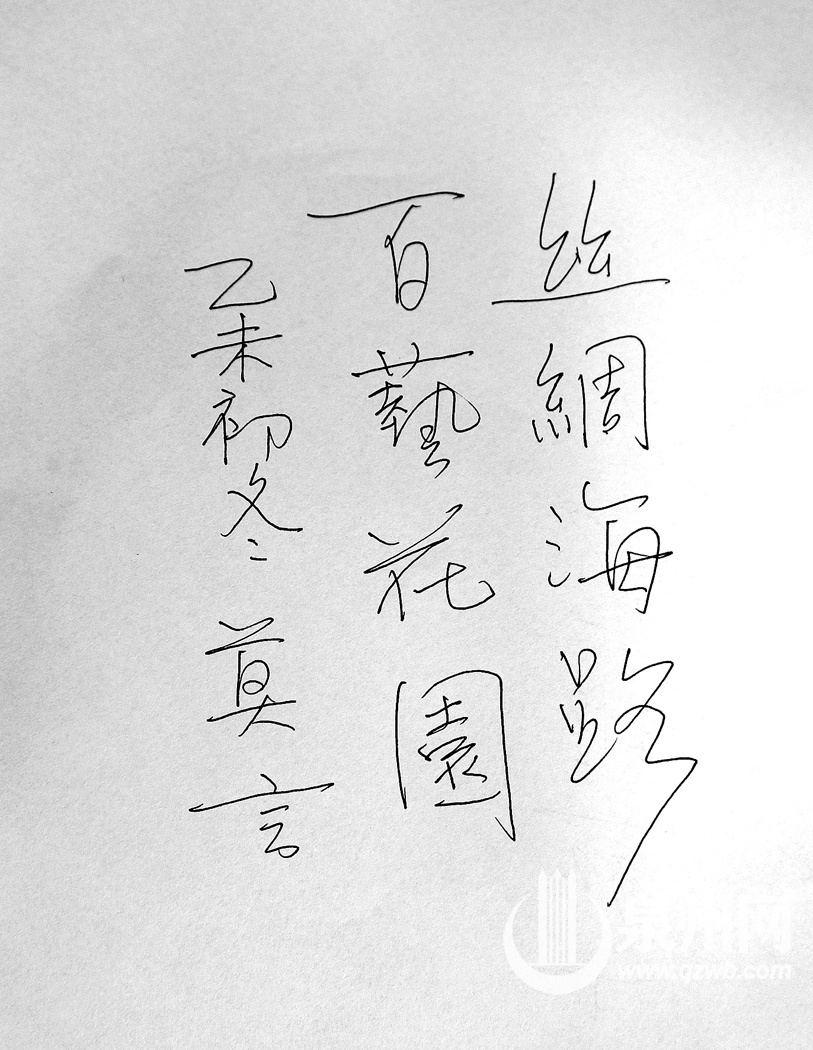 丝綢海路
百藝花園
乙未初冬 莫言
泉州网
www.qzwb.com